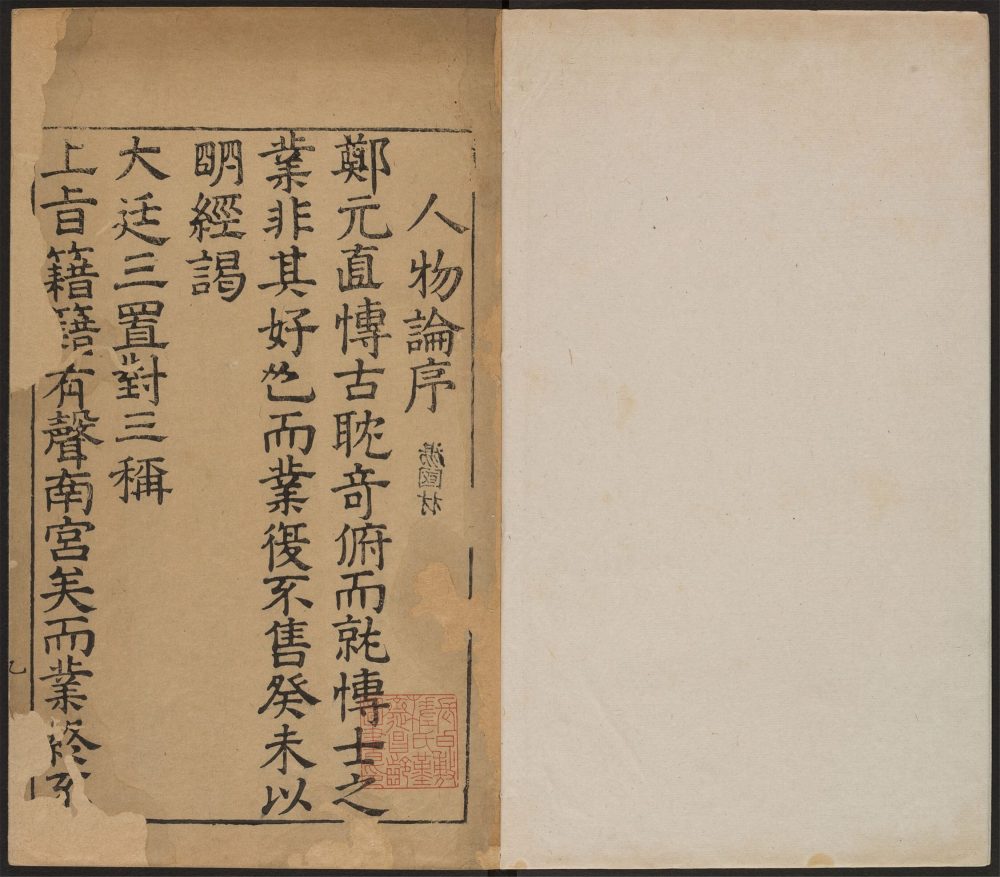 人物論序
鄭元直博古耽奇俯而就博士之
業非其好也而業復不售癸未以
明經謁
大廷三置對三稱
上旨籍籍有聲南宮矣而業終不